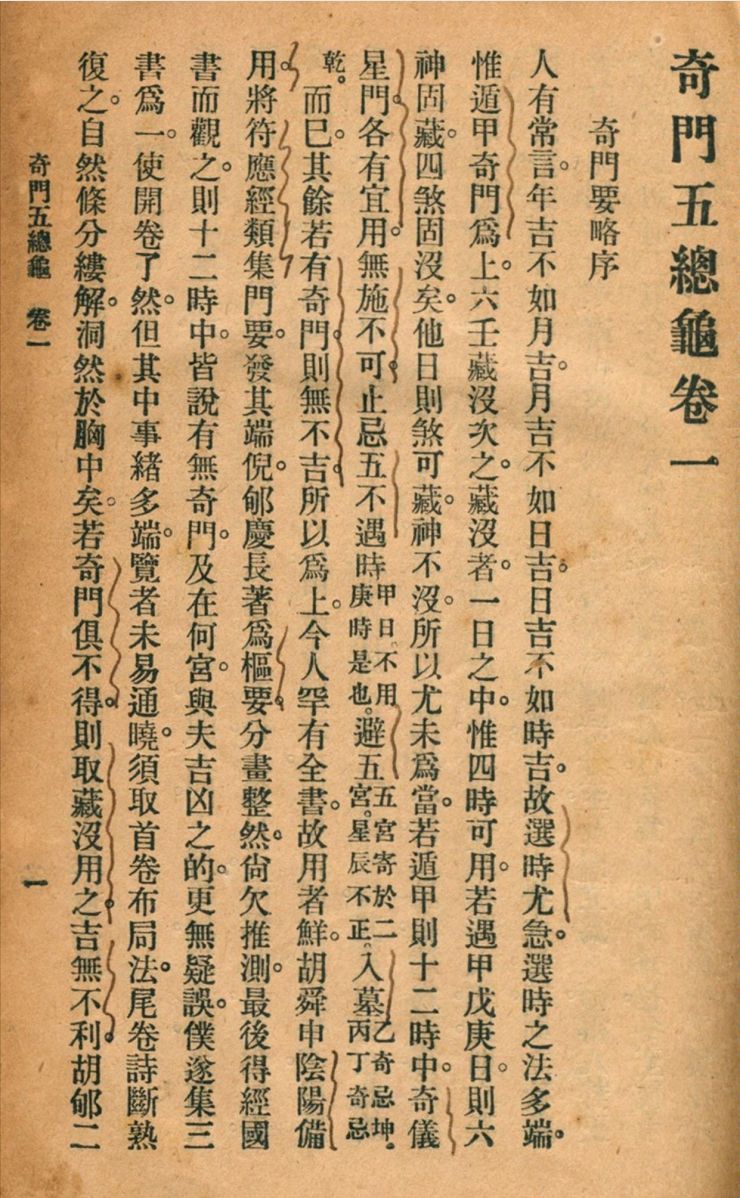 奇門五總龜卷一
奇門要略序
人有常言。年吉不如月吉。月吉不如日吉。日吉不如時吉。故選時尤急。選時之法多端。
惟遁甲奇門爲上。六壬藏沒次之。藏沒者。一日之中。惟四時可用。若遇甲戊庚日。則六
神固藏。四煞固沒矣。他日則煞可藏。神不沒。所以尤未爲當。若遁甲則十二時中。奇儀
星門。各有宜用。無施不可。止忌五不遇時甲日不用庚時是也。避五五宮寄於二宮。星辰不正。入墓乙奇忌坤。丙丁奇忌
乾。而巳。其餘若有奇門。則無不吉。所以爲上。今人罕有全書。故用者鮮。胡舜申陰陽備
用。將符應經類集門要。發其端倪。郇慶長著爲樞要。分畫整然。尙欠推測。最後得經國
書而觀之。則十二時中。皆說有無奇門。及在何宮。與夫吉凶之的。更無疑誤。僕遂集三
書爲一。使開卷了然。但其中事緒多端。覽者未易通曉。須取首卷布局法。尾卷詩斷熟
復之。自然條分縷解。洞然於胸中矣。若奇門俱不得。則取藏沒用之。吉無不利。胡郇二
奇門五總龜 卷一
一